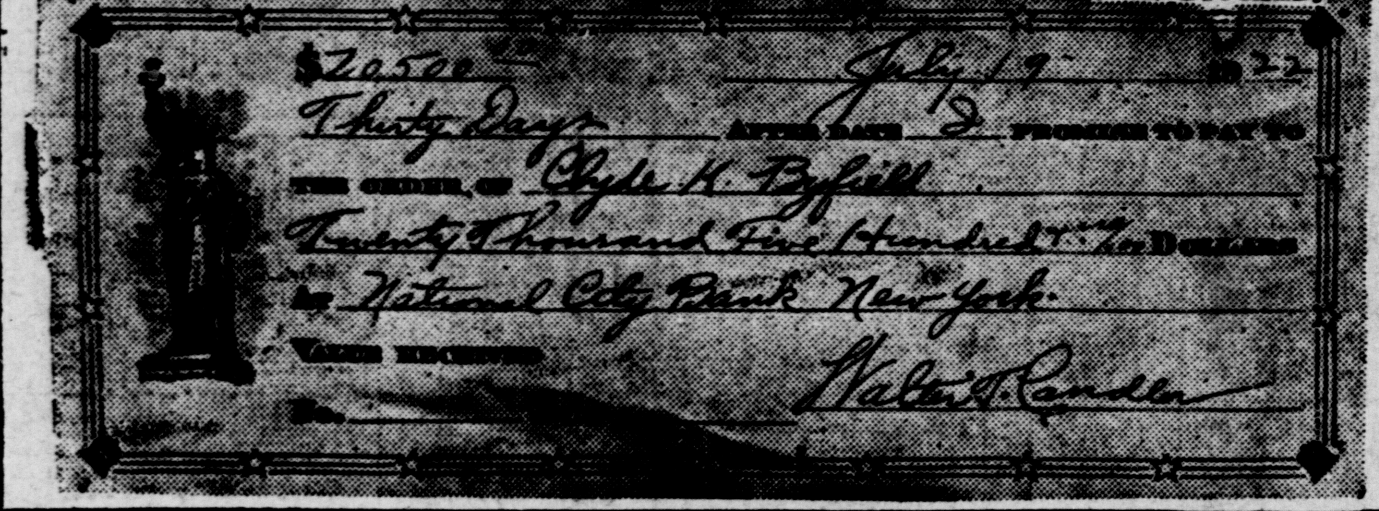 $20500 00 July 19 1922
Thirty Days AFTER DATE I PROMISE TO PAY TO
THE ORDER OF Clyde K. Byfield
Twenty Thousand Five Hundred & no/100 DOLLARS
At National City Bank New York.
VALUE RECEIVED
No. Walter T. Candler